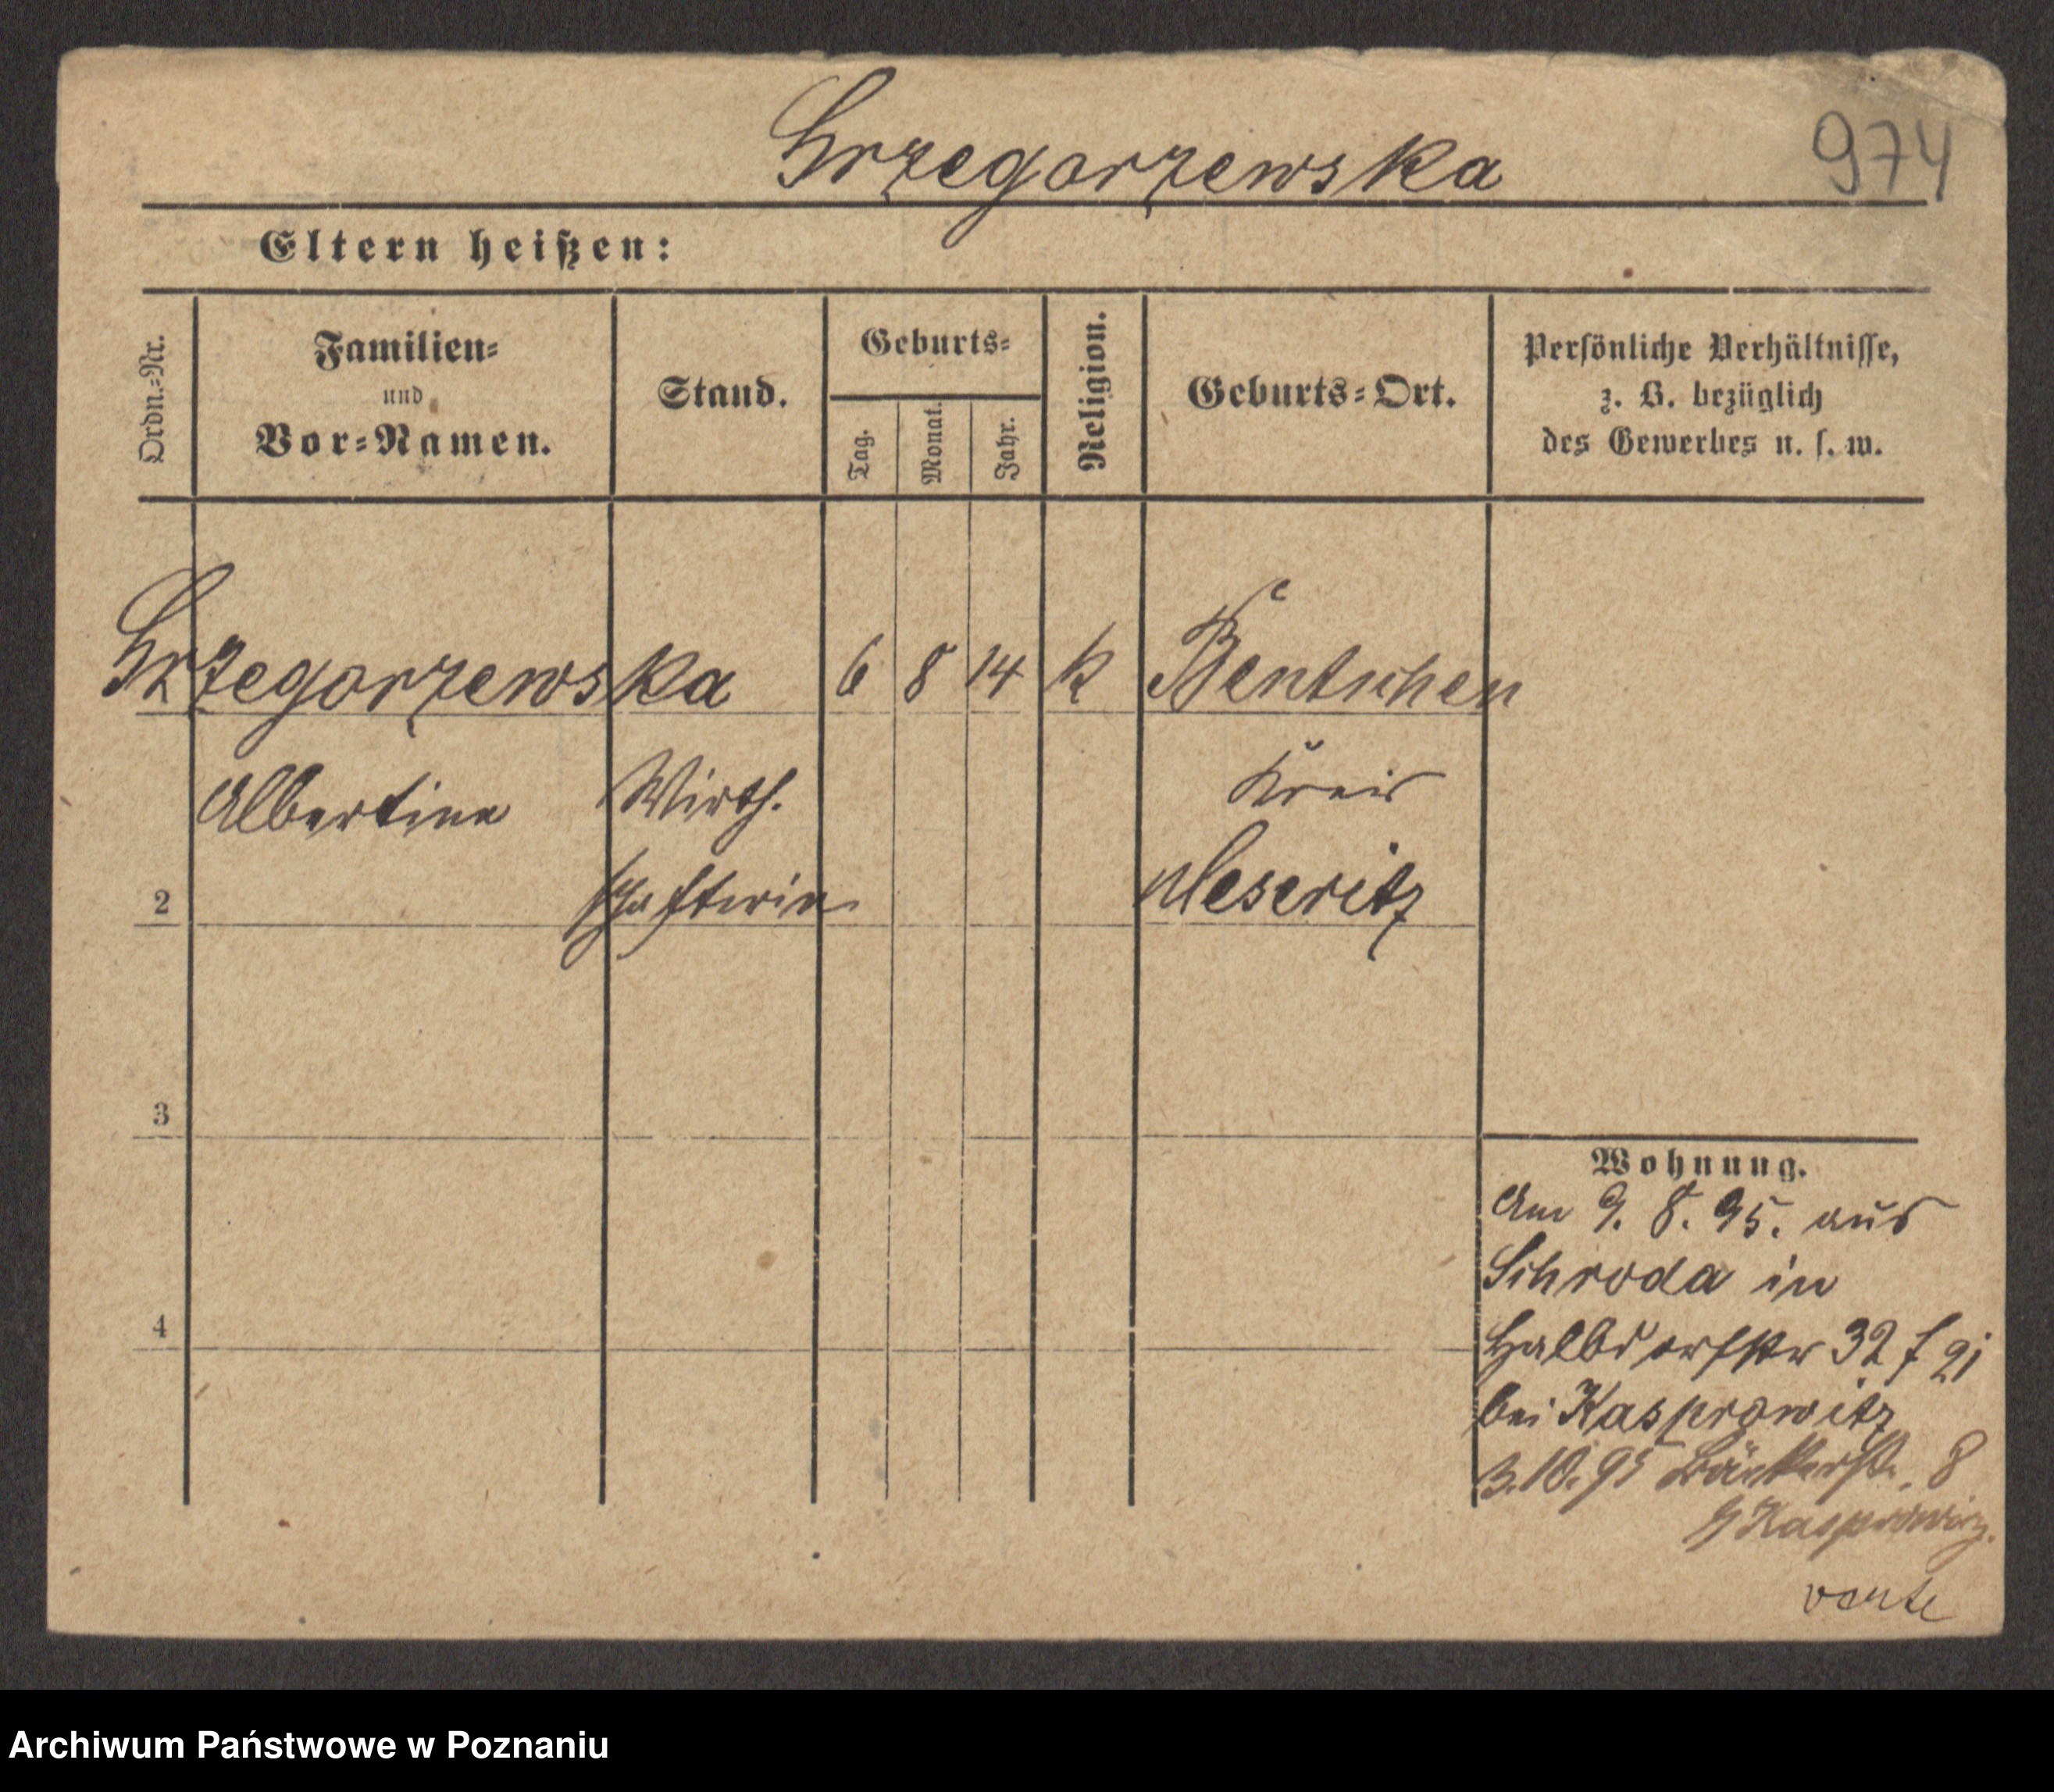 Grzegorzewska
974
Eltern heißen:
Ordn.-Nr.
Familien-
und
Vor-Namen.
Stand.
Geburts-
Tag.
Monat.
Jahr.
Religion.
Geburts-Ort.
Persönliche Verhältnisse,
z. B. bezüglich
des Gewerbes u. s. w.
Grzegorzewska 6 8 14 k Bentschen
Albertine Wirth. Kreis
2 schafterin Meseritz
3
4
Wohnung.
Am 9. 8. 95. aus
Schroda in
Halbdorfstr 32
bei Kasprowitz
3.10.95 Bäckerstr. 8
Kasprowicz.
vente
Archiwum Państwowe w Poznaniu